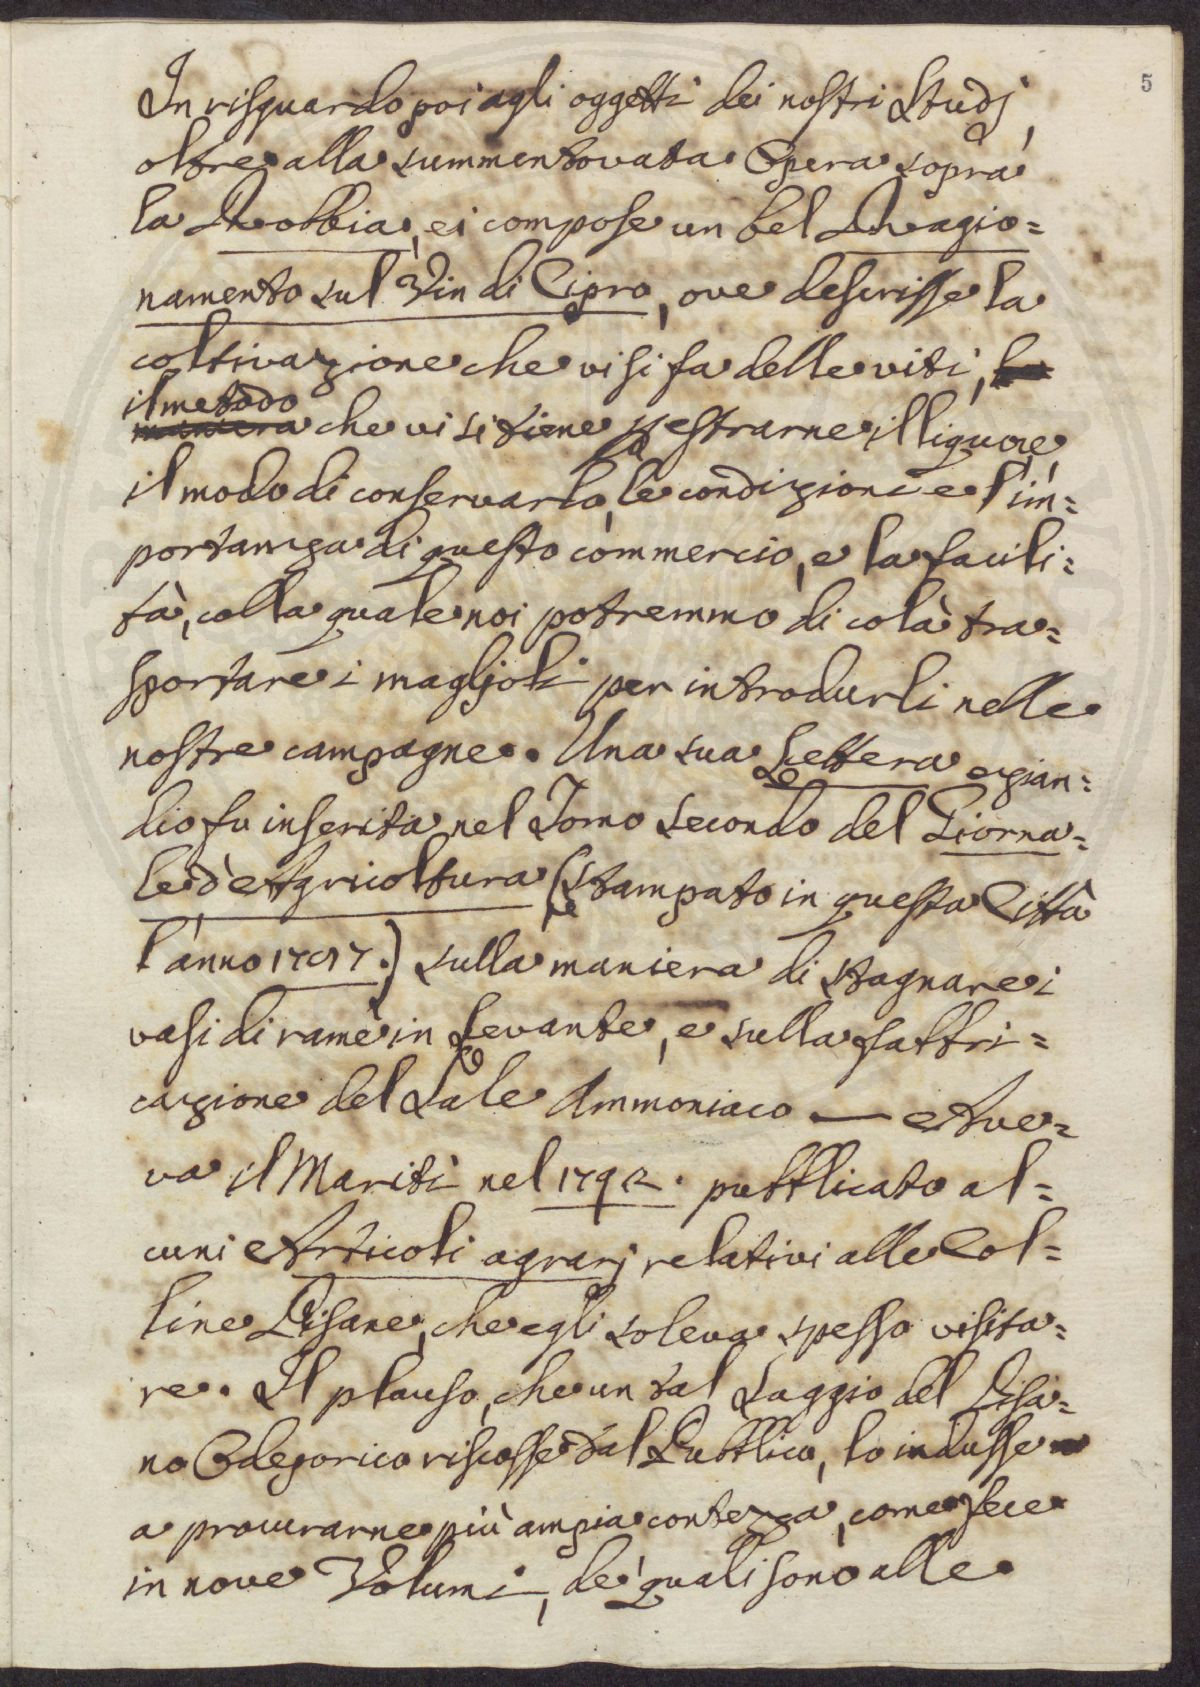 5
In risguardo poi agli oggetti dei nostri Studj,
oltre alla summentovata Opera sopra
la Robbia, ei compose un bel Ragio=
namento sul Vin di Cipro, ove descrisse la
coltivazione che vi si fa delle viti, la
il metodo
maniera che vi si tiene p estrarne il liquore,
il modo di conservarlo, le condizioni e l'im=
portanza di questo commercio, e la facili=
tà, colla quale noi potremmo di colà tra=
sportare i magljoli per introdurli nelle
nostre campagne. Una sua Lettera ezian=
dio fu inserita nel Tomo secondo del Giorna=
le d'Agricoltura (Stampato in questa Città
l'anno 1787.) sulla maniera di stagnare i
vasi di rame in Levante, e sulla fabbri=
cazione del Sale Ammoniaco — Ave=
va il Mariti nel 1792. pubblicato al=
cuni Articoli agrarj relativi alle Col=
line Pisane, che egli soleva spesso visita=
re. Il plauso, che un tal Saggio del Pisa=
no Odeporico riscosse dal Pubblico, lo indusse
a procurarne più ampia contezza, come fece
in nove Volumi, de' quali sono alle